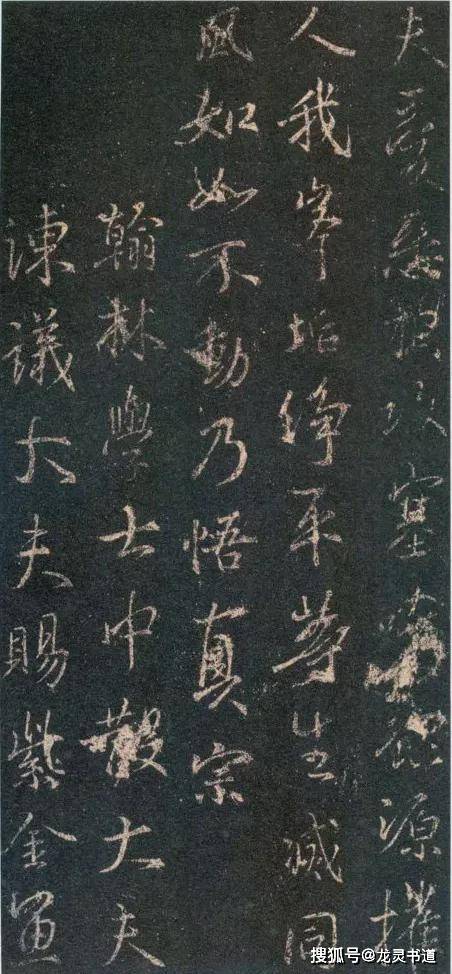 夫愛惡塞源摧
人我峯垢淨平等生滅同
風如如不動乃悟真宗
翰林學士中散大夫
諫議大夫賜紫金魚
搜狐号@龙灵书道